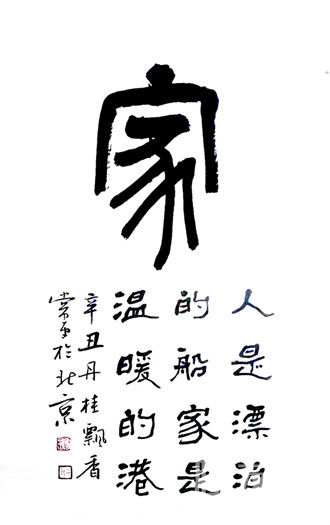 家
人是漂泊
的船家是
温暖的港
辛丑丹桂飄香
於北京